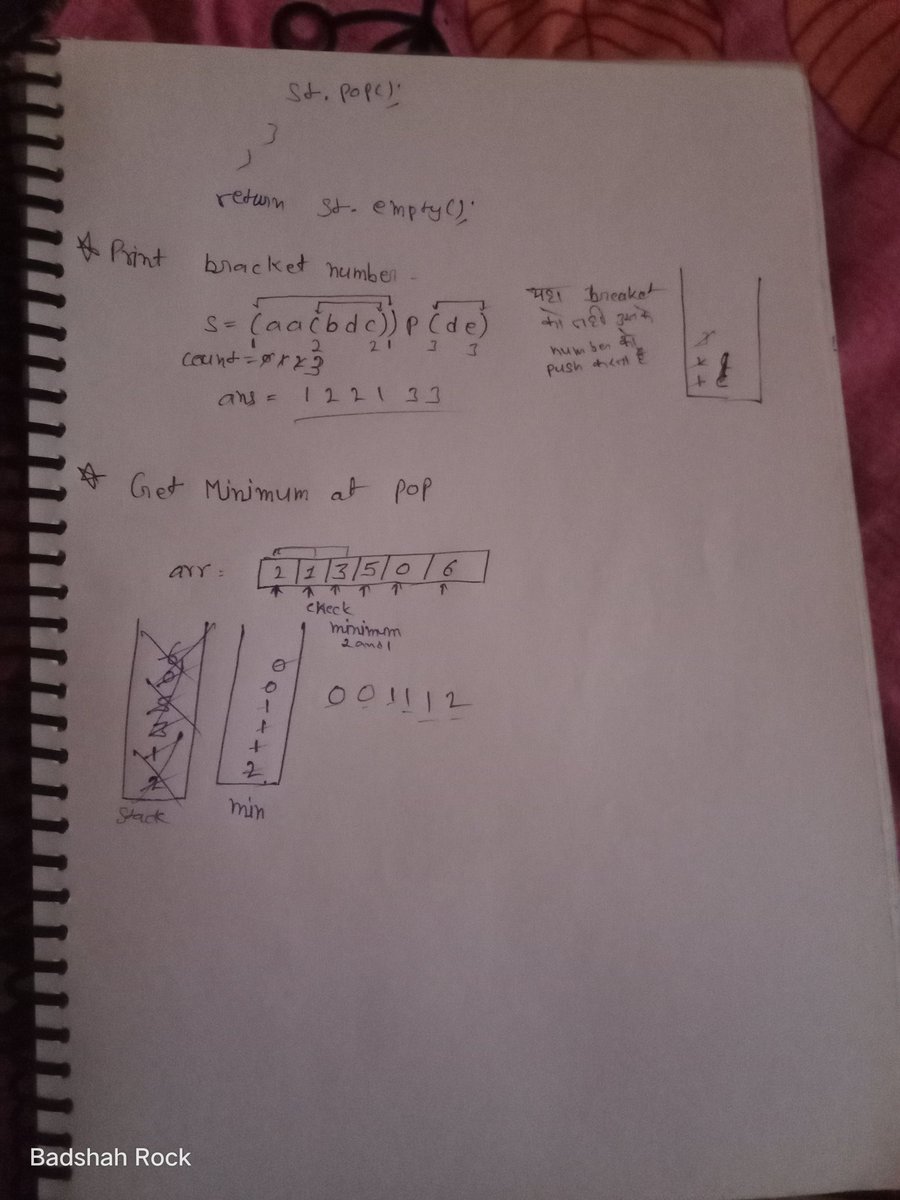 st. pop();
}
}
return st. empty();
☆ Print bracket number
S = (aa(bdc))P(de)
1 2 2 1 3 3
count = 0 1 2 3
ans = 1 2 2 1 3 3
यहा breaket
को नही उनके
number को
push करना है
☆ Get Minimum at pop
arr = 2 1 3 5 0 6
check
minimum
2 and 1
0 0 1 1 1 2
0
0
1
1
1
2
stack
min
Badshah Rock